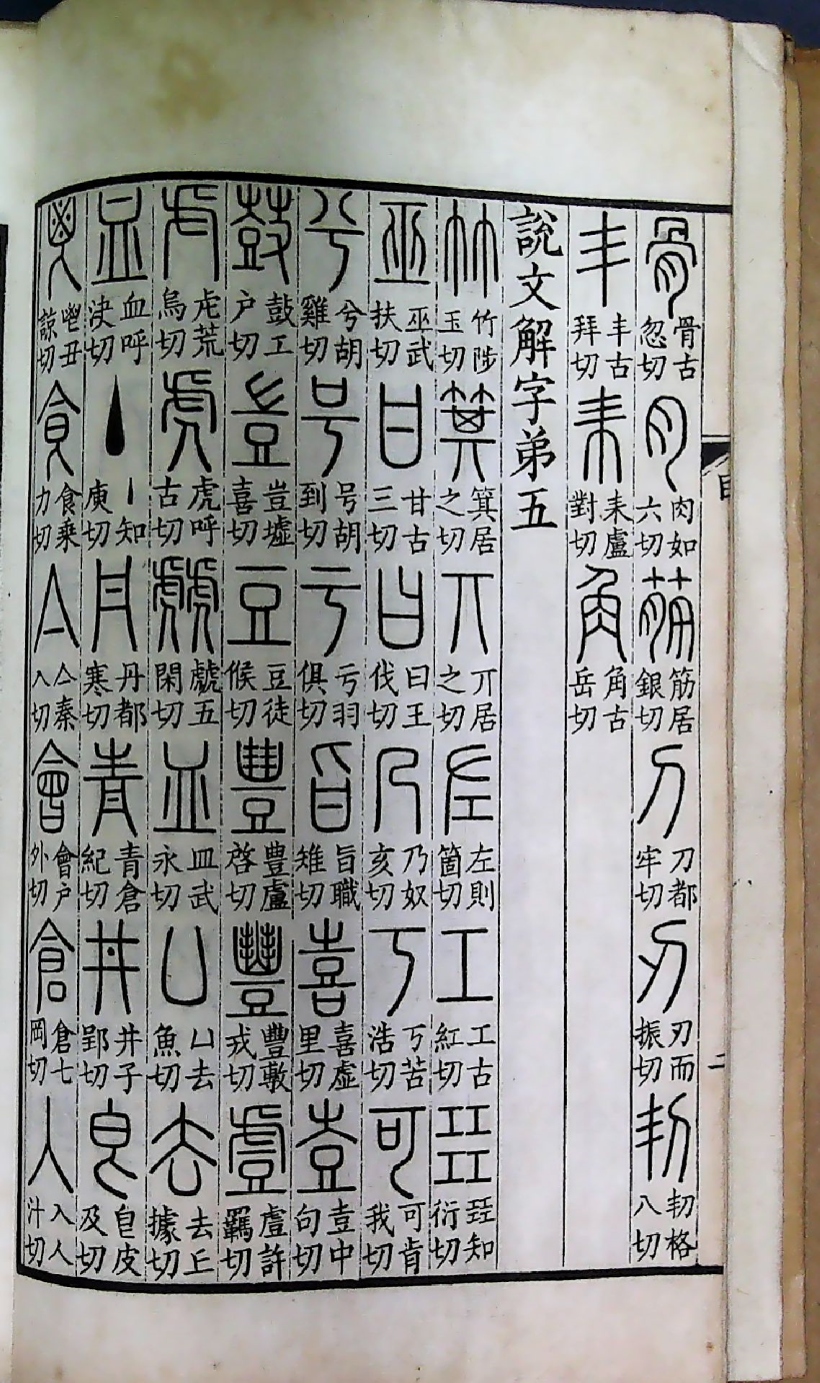 骨古忽切 肉如六切 筋居銀切 刀都牢切 刃而振切 㓞格八切
丯古拜切 耒盧對切 角古岳切
說文解字弟五
竹陟玉切 箕居之切 丌居之切 左則箇切 工古紅切 㠭知衍切
巫武扶切 甘古三切 曰王伐切 乃奴亥切 丂苦浩切 可肯我切
兮胡雞切 号胡到切 亏羽俱切 旨職雉切 喜虛里切 壴中句切
鼓工戶切 豈墟喜切 豆徒候切 豊盧啓切 豐敷戎切 䖒許羈切
虍荒烏切 虎呼古切 虤五閑切 皿武永切 凵去魚切 去丘據切
血呼決切 丶知庾切 丹都寒切 青倉紀切 井子郢切 皀皮及切
鬯丑諒切 食乘力切 亼秦入切 會户外切 倉七岡切 入人汁切
二